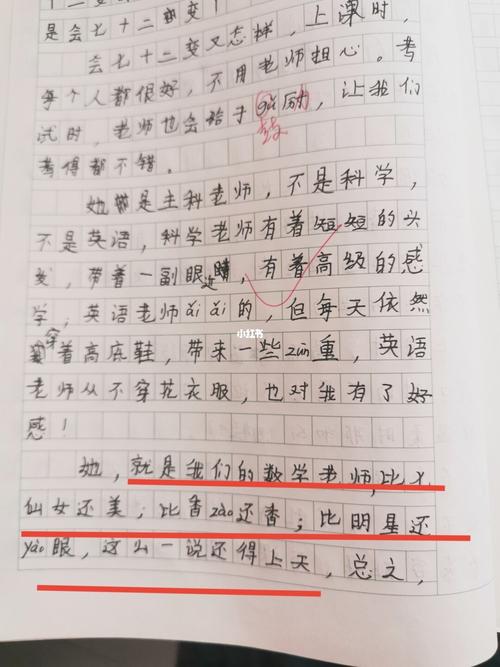 是会七十二变
会七十二变又怎样，上课时，
每个人都很好，不用老师担心。考
试时，老师也会给于gǔ厉，让我们
鼓
考得都不错。
她是主科老师，不是科学，
不是英语，科学老师有着短短的头
发，带着一副眼睛，有着高级的感
学，英语老师ǎi ǎi的，但每天依然
小红书
穿着高底鞋，带来一些zūn重，英语
老师从不穿花衣服，也对我有了好
感！
她，就是我们的数学老师，比
仙女还美；比香zào还香；比明星还
yào眼，这么一说还得上天，总之，